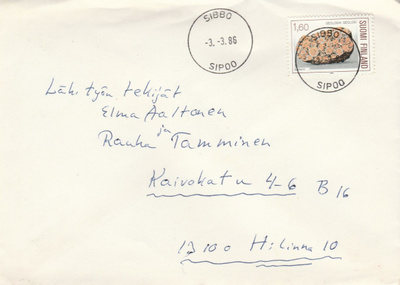 SIBBO
-3.-3.86
SIPOO
1,60
SUOMI FINLAND
SIBBO
SIPOO
Läh. työn tekijät
Elma Aaltonen
ja
Rauha Tamminen
Kaivokatu 4-6 B 16
13100 H:linna 10